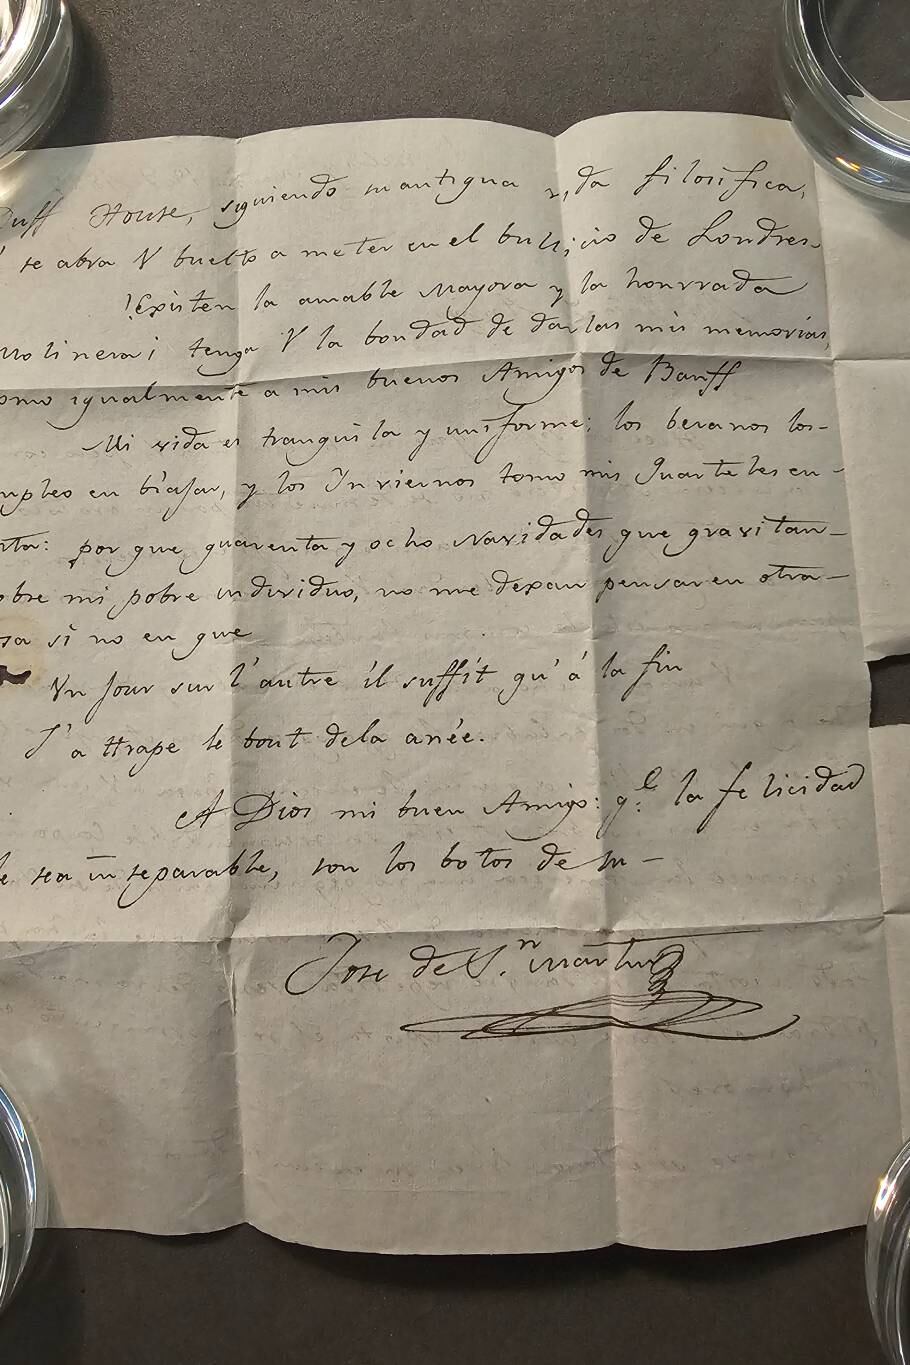 Duff House, siguiendo su antigua vida filosifica,
se abra V buelto a meter en el bullicio de Londres.
!Existen la amable Mayora y la honrrada
Molinera¡ tenga V la bondad de darlas mis memorias,
como igualmente a mis buenos Amigos de Banff
Mi vida es tranquila y uniforme: los beranos los-
empleo en biajar, y los Inviernos tomo mis Quarteles en-
por que quarenta y ocho Navidades que gravitan-
sobre mi pobre individuo, no me dexan pensar en otra-
cosa si no en que
Un Jour sur l'autre il suffit qu'á la fin
J'attrape le bout dela anée.
A Dios mi buen Amigo: q.e la felicidad
le sea inseparable, son los botos de su-
Jose de S.n Martin